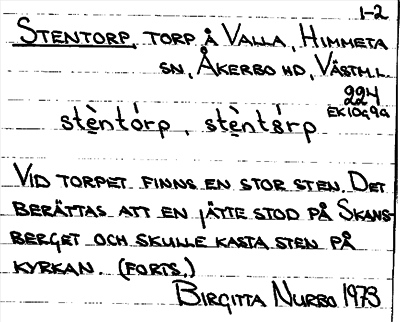 1-2
STENTORP, TORP Å VALLA, HIMMETA
SN, ÅKERBO HD, VÄSTM.L.
224
EK10G9a
stèntórp, stènt
VID TORPET FINNS EN STOR STEN. DET
BERÄTTAS ATT EN JÄTTE STOD PÅ SKANS-
BERGET OCH SKULLE KASTA STEN PÅ
KYRKAN. (FORTS.)
BIRGITTA NURBO 1973